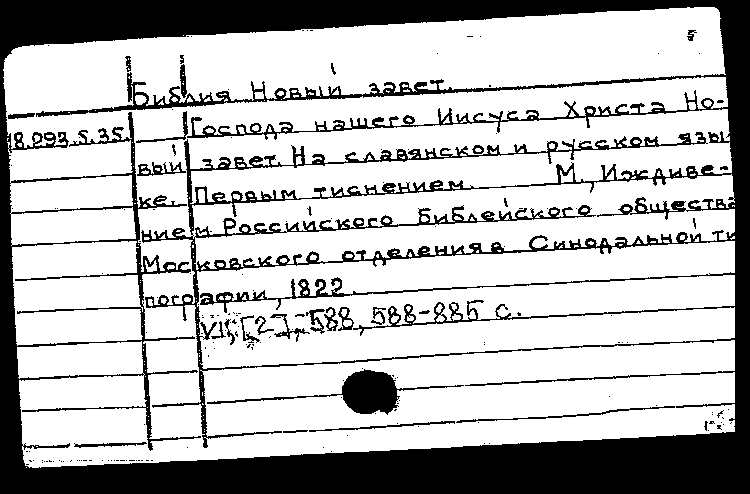 Библия Новый завет.
18.093.5.35. Господа нашего Иисуса Христа Но-
вый завет. На славянском и русском язы
ке. Первым тиснением. М., Иждиве-
нием Российского Библейского общества
Московского отделения в Синодальной ти
пографии, 1822.
VII, [2], 588, 588-885 с.